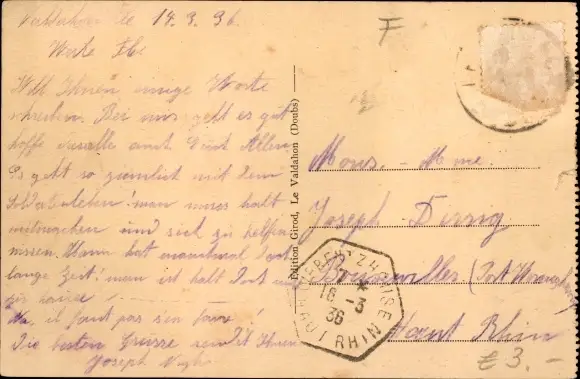 Valdahon le 14.3.36
Werte
Will Ihnen einige Worte
schreiben. Bei uns geht es gut
hoffe daselbe amit Allen.
Es geht so zimlich mit dem
Soldatenleben! man mus halt
mitmachen und sich zu helfen
wissen. Mann hat manchmal
lange Zeit! man ist halt
zu hause.
Na, il faut pas s'en faire!
Die besten Grüsse sendet Ihnen
Joseph
Edition Girod, Le Valdahon (Doubs)
F
Mons. - Mme.
Joseph
Haut Rhin
HAUT RHIN
16 -3
36
€ 3.-